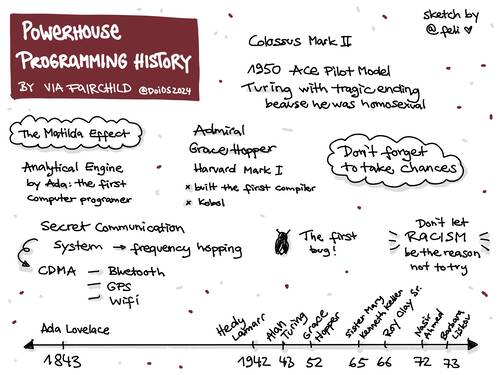 Powerhouse
Programming History
By Via Fairchild @DOIDS2024
sketch by
@.feli
Colossus Mark II
1950 Ace Pilot Model
Turing with tragic ending
beause he was homosexual
The Matilda Effect
Analytical Engine
by Ada: the first
computer programer
Admiral
Grace Hopper
Harvard Mark I
x built the first compiler
x Kobol
Don't forget
to take chances
Secret Communication
System → frequency hopping
CDMA — Bluetooth
— GPS
— Wifi
The first
bug!
Don't let
RACISM
be the reason
not to try
Ada Lovelace
Hedy Lamarr
Alan Turing
Grace Hopper
Sister Mary Kenneth Keller
Roy Clay Sr.
Nasir Ahmed
Barbara Liskov
1843 1942 48 52 65 66 72 73